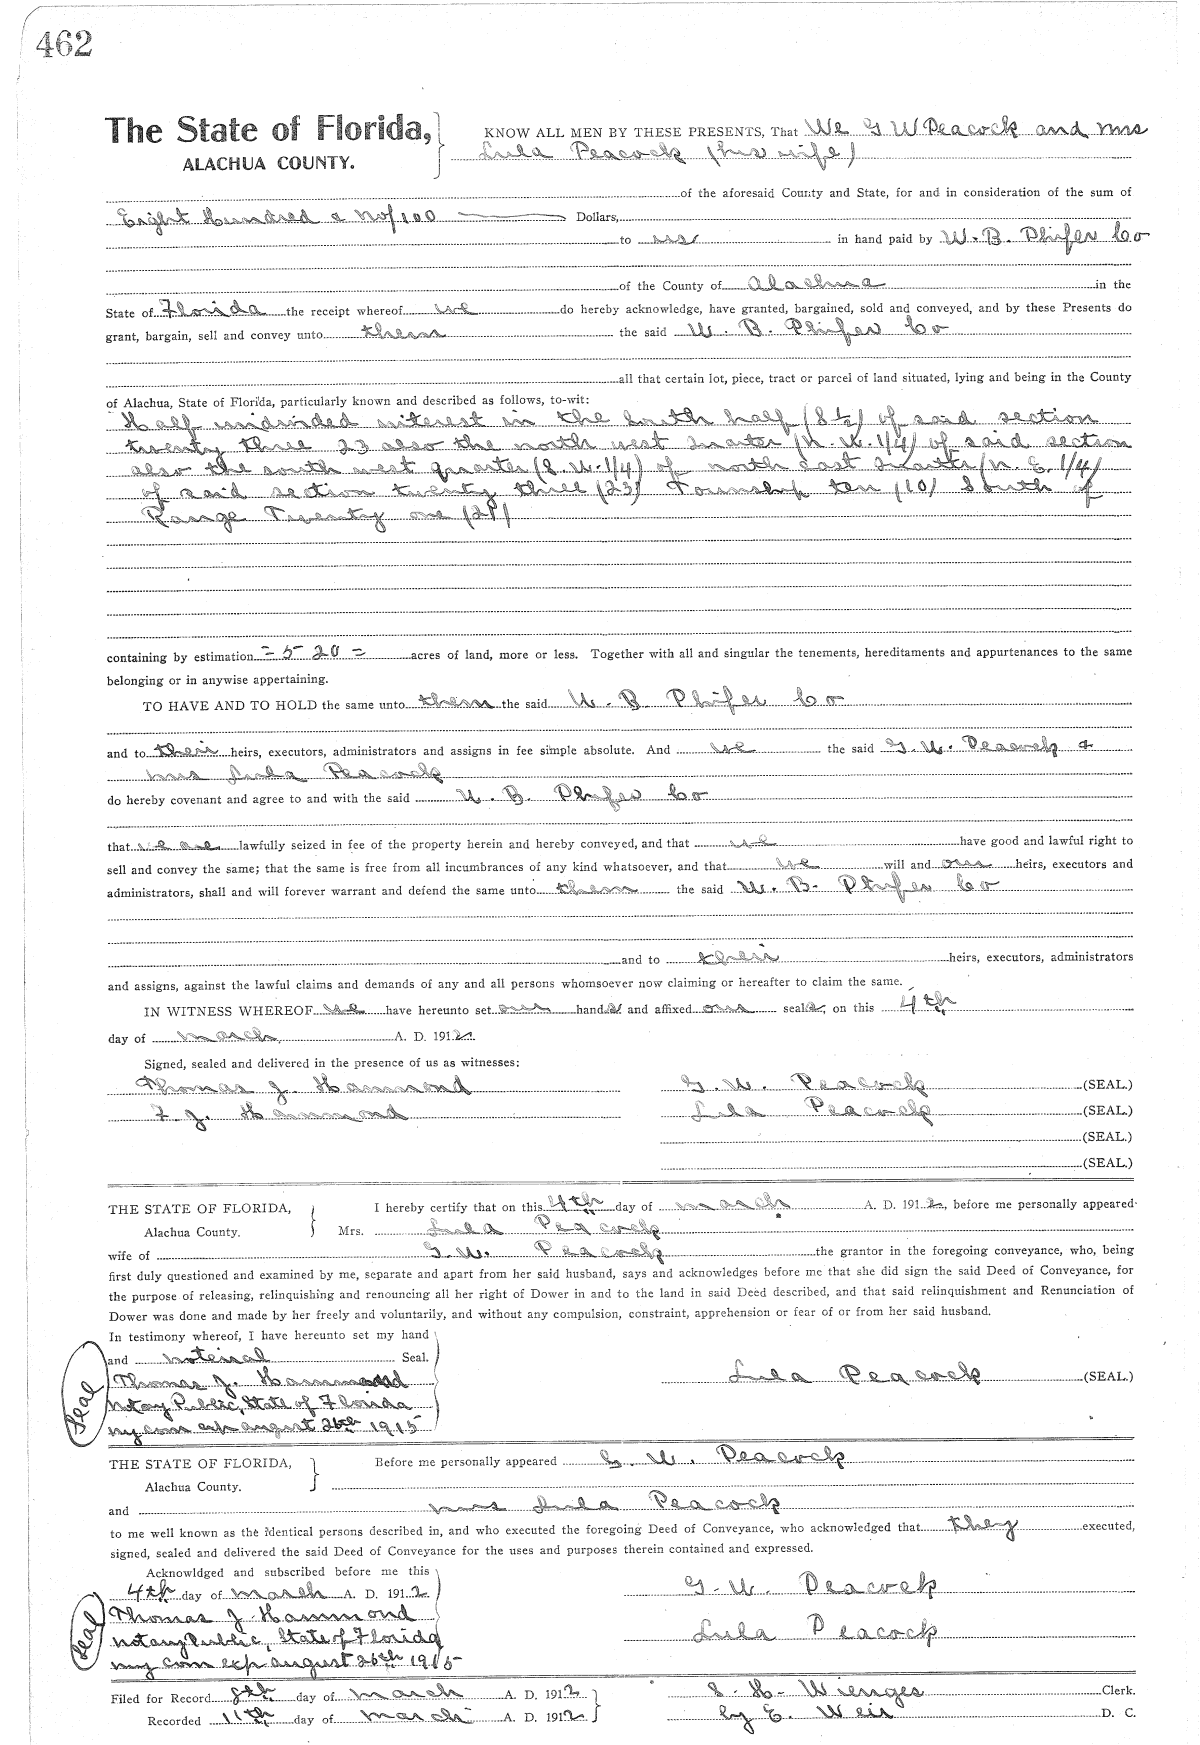 462
The State of Florida, KNOW ALL MEN BY THESE PRESENTS, That We G W Peacock and mrs
ALACHUA COUNTY. Lula Peacock (his wife)
of the aforesaid County and State, for and in consideration of the sum of
Eight Hundred & no/100 Dollars,
to us in hand paid by W. B. Phifer Co
of the County of Alachua in the
State of Florida the receipt whereof we do hereby acknowledge, have granted, bargained, sold and conveyed, and by these Presents do
grant, bargain, sell and convey unto them the said W. B. Phifer Co
all that certain lot, piece, tract or parcel of land situated, lying and being in the County
of Alachua, State of Florida, particularly known and described as follows, to-wit:
Half undivided interest in the South half (S ½) of said section
twenty three 23 also the north west quarter (N. W. 1/4) of said section
also the south west quarter (S. W. 1/4) of north east quarter (N. E. 1/4)
of said section twenty three (23) Township ten (10) South of
Range Twenty one (21)
containing by estimation = 5 20 = acres of land, more or less. Together with all and singular the tenements, hereditaments and appurtenances to the same
belonging or in anywise appertaining.
TO HAVE AND TO HOLD the same unto them the said W. B Phifer Co
and to their heirs, executors, administrators and assigns in fee simple absolute. And we the said G. W. Peacock &
mrs Lula Peacock
do hereby covenant and agree to and with the said W. B. Phifer Co
that we are lawfully seized in fee of the property herein and hereby conveyed, and that we have good and lawful right to
sell and convey the same; that the same is free from all incumbrances of any kind whatsoever, and that we will and our heirs, executors and
administrators, shall and will forever warrant and defend the same unto them the said W. B. Phifer Co
and to their heirs, executors, administrators
and assigns, against the lawful claims and demands of any and all persons whomsoever now claiming or hereafter to claim the same.
IN WITNESS WHEREOF we have hereunto set our hands and affixed our seals, on this 4th
day of march A. D. 1912.
Signed, sealed and delivered in the presence of us as witnesses:
Thomas J. Hammond G. W. Peacock (SEAL.)
F. J. Hammond Lula Peacock (SEAL.)
(SEAL.)
(SEAL.)
THE STATE OF FLORIDA, I hereby certify that on this 4th day of march A. D. 1912, before me personally appeared
Alachua County. Mrs. Lula Peacock
wife of G. W. Peacock the grantor in the foregoing conveyance, who, being
first duly questioned and examined by me, separate and apart from her said husband, says and acknowledges before me that she did sign the said Deed of Conveyance, for
the purpose of releasing, relinquishing and renouncing all her right of Dower in and to the land in said Deed described, and that said relinquishment and Renunciation of
Dower was done and made by her freely and voluntarily, and without any compulsion, constraint, apprehension or fear of or from her said husband.
In testimony whereof, I have hereunto set my hand
and noterial Seal.
Seal Thomas J. Hammond Lula Peacock (SEAL.)
Notary Public, State of Florida
my com exp august 26th 1915
THE STATE OF FLORIDA, Before me personally appeared G. W. Peacock
Alachua County.
and mrs Lula Peacock
to me well known as the identical persons described in, and who executed the foregoing Deed of Conveyance, who acknowledged that they executed,
signed, sealed and delivered the said Deed of Conveyance for the uses and purposes therein contained and expressed.
Acknowldged and subscribed before me this
4th day of march A. D. 1912 G. W. Peacock
Seal Thomas J Hammond
Notary Public, State of Florida Lula Peacock
my com exp august 26th 1915
Filed for Record 8th day of march A. D. 1912 S. H. Wienges Clerk.
Recorded 11th day of march A. D. 1912 by E. Weir D. C.